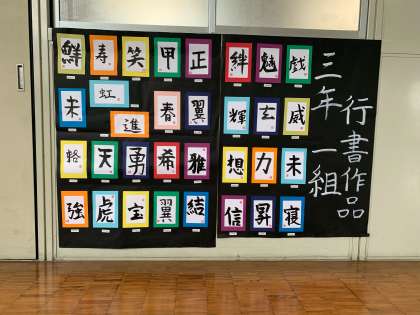 三年一組
行書作品
鮮 寿 笑 甲 正 絆 魅 戯
未 虹 進 春 翼 輝 玄 威
天 勇 希 雅 想 力 未
強 虎 宝 翼 結 信 昇 寝